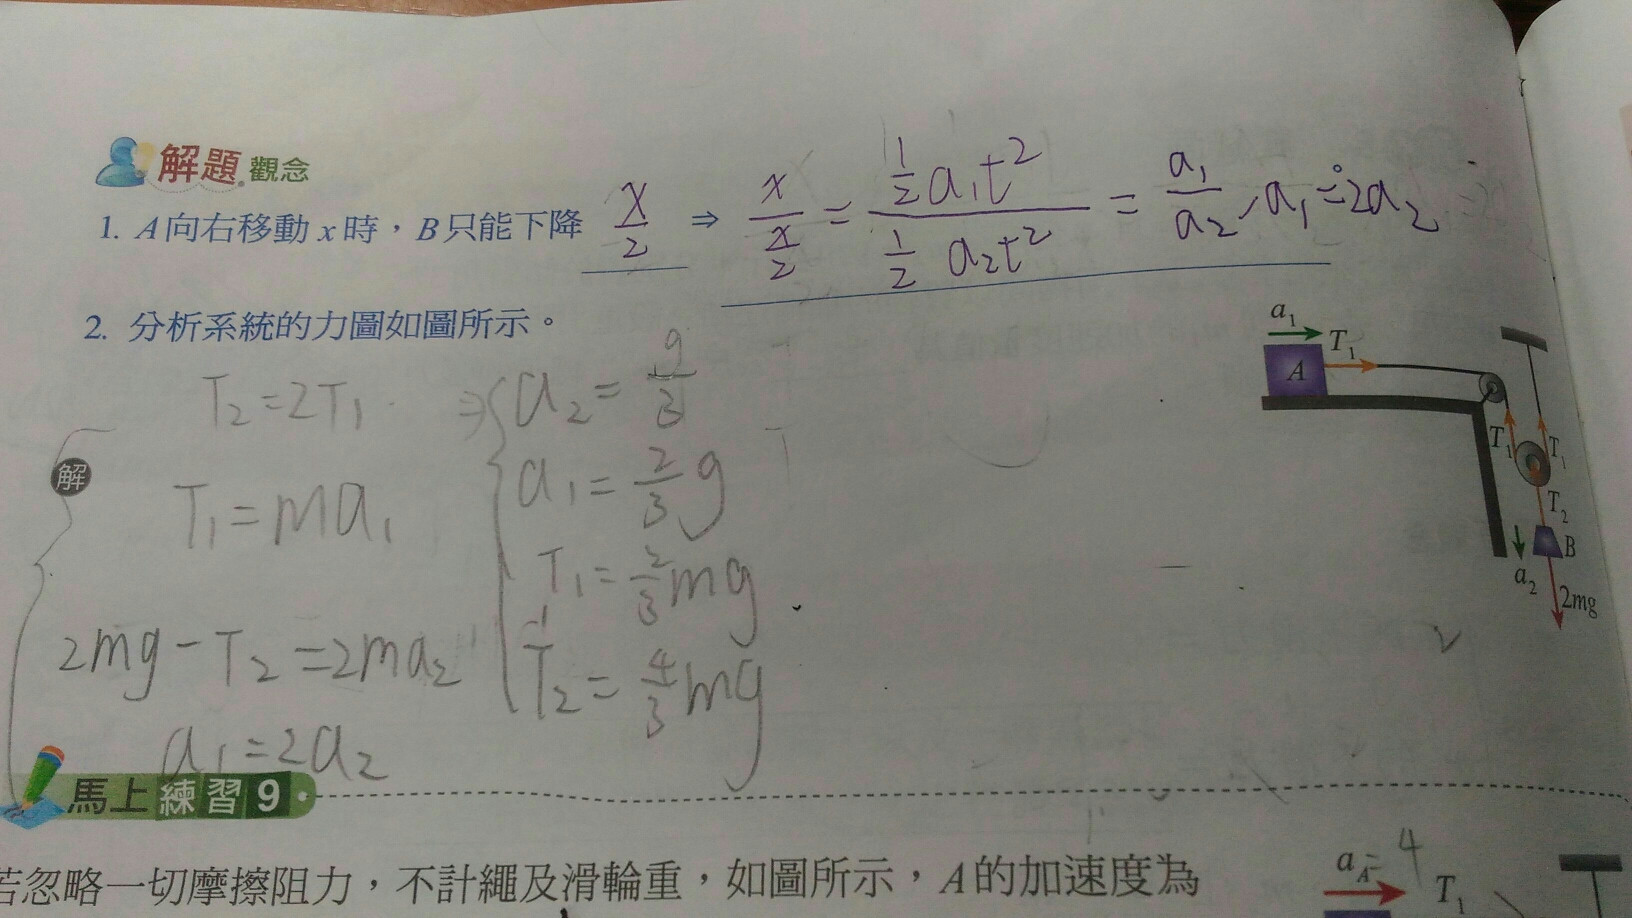 解題觀念
1. A向右移動 x 時，B只能下降 x/2 ⇒ x/(x/2) = (1/2 a₁t²)/(1/2 a₂t²) = a₁/a₂, a₁=2a₂
2. 分析系統的力圖如圖所示。
解
T₂=2T₁
T₁=ma₁
2mg-T₂=2ma₂
a₁=2a₂
⇒ a₂=g/3
a₁=2/3 g
T₁=2/3 mg
T₂=4/3 mg
a₁
T₁
A
T₁
T₁
T₂
B
a₂
2mg
馬上練習9
若忽略一切摩擦阻力，不計繩及滑輪重，如圖所示，A的加速度為
a_A=4
T₁